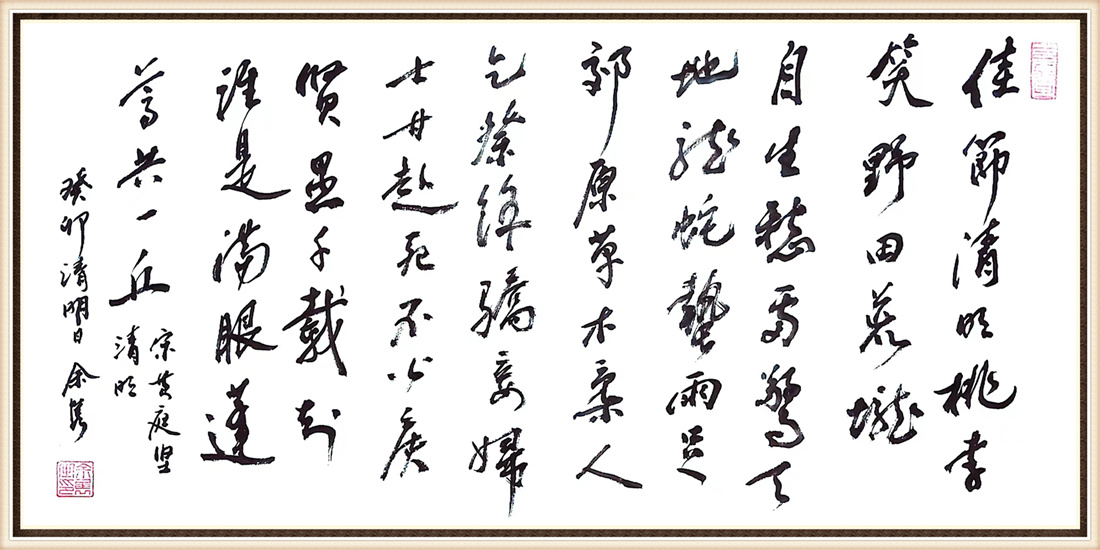 佳節清明桃李
笑野田荒壠
自生愁雷驚天
地龍蛇蟄雨足
郊原草木柔人
乞祭餘驕妾婦
士甘赴死不公侯
賢愚千載知
誰是滿眼蓬
蒿共一丘
宋黄庭坚
清明
癸卯清明日余